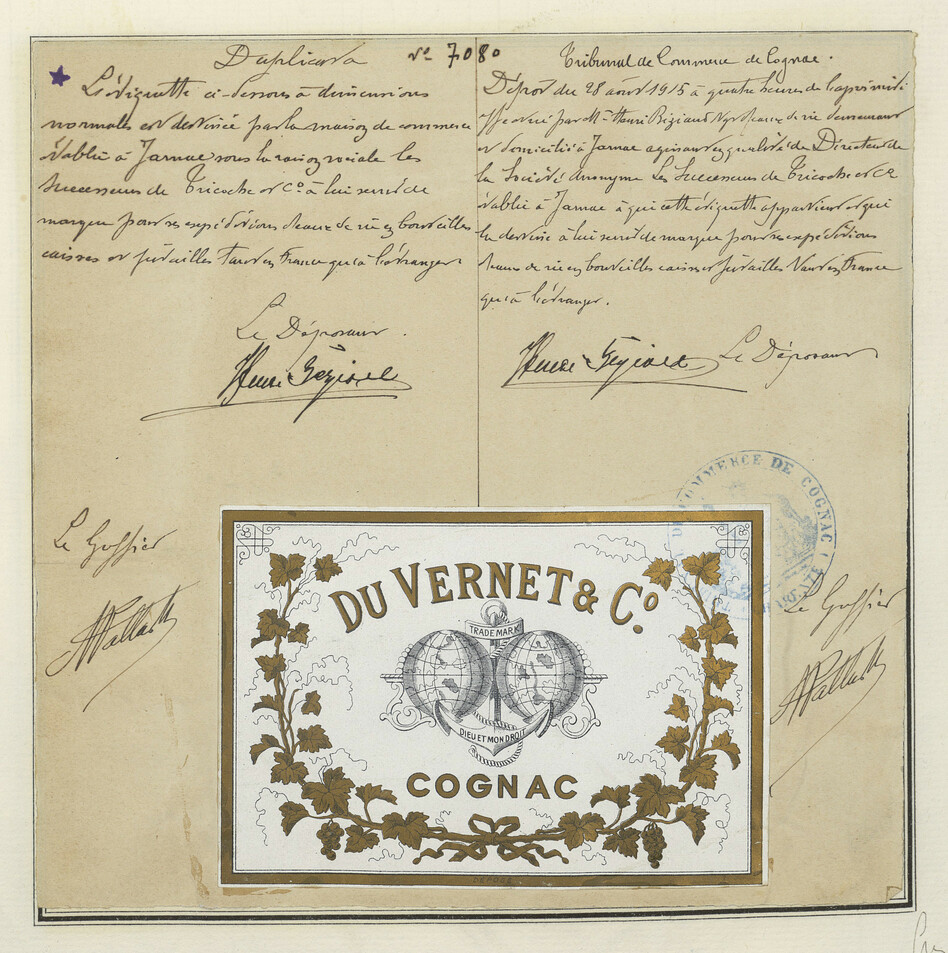 Duplicata
No 7080
La vignette ci-dessous à dimensions
normales est destinée par la maison de commerce
établie à Jarnac sous la raison sociale les
Successeurs de Tricoche et Co. à lui servir de
marque pour ses expéditions d'eaux de vie en bouteilles
caisses et futailles tant en France qu'à l'étranger.
Le Déposant.
Le Greffier
Tribunal de Commerce de Cognac.
Dépôt du 28 août 1915 à quatre heures de l'après midi
effectué par Mr Henri demeurant
et domicilié à Jarnac agissant en qualité de Directeur de
la Société Anonyme Les Successeurs de Tricoche et Co
établie à Jarnac à qui cette vignette appartient et qui
la destine à lui servir de marque pour ses expéditions
d'eaux de vie en bouteilles caisses et futailles tant en France
qu'à l'étranger.
Le Déposant
COMMERCE DE COGNAC
Le Greffier
DU VERNET & Co.
TRADE MARK
DIEU ET MON DROIT
COGNAC
DÉPOSÉ